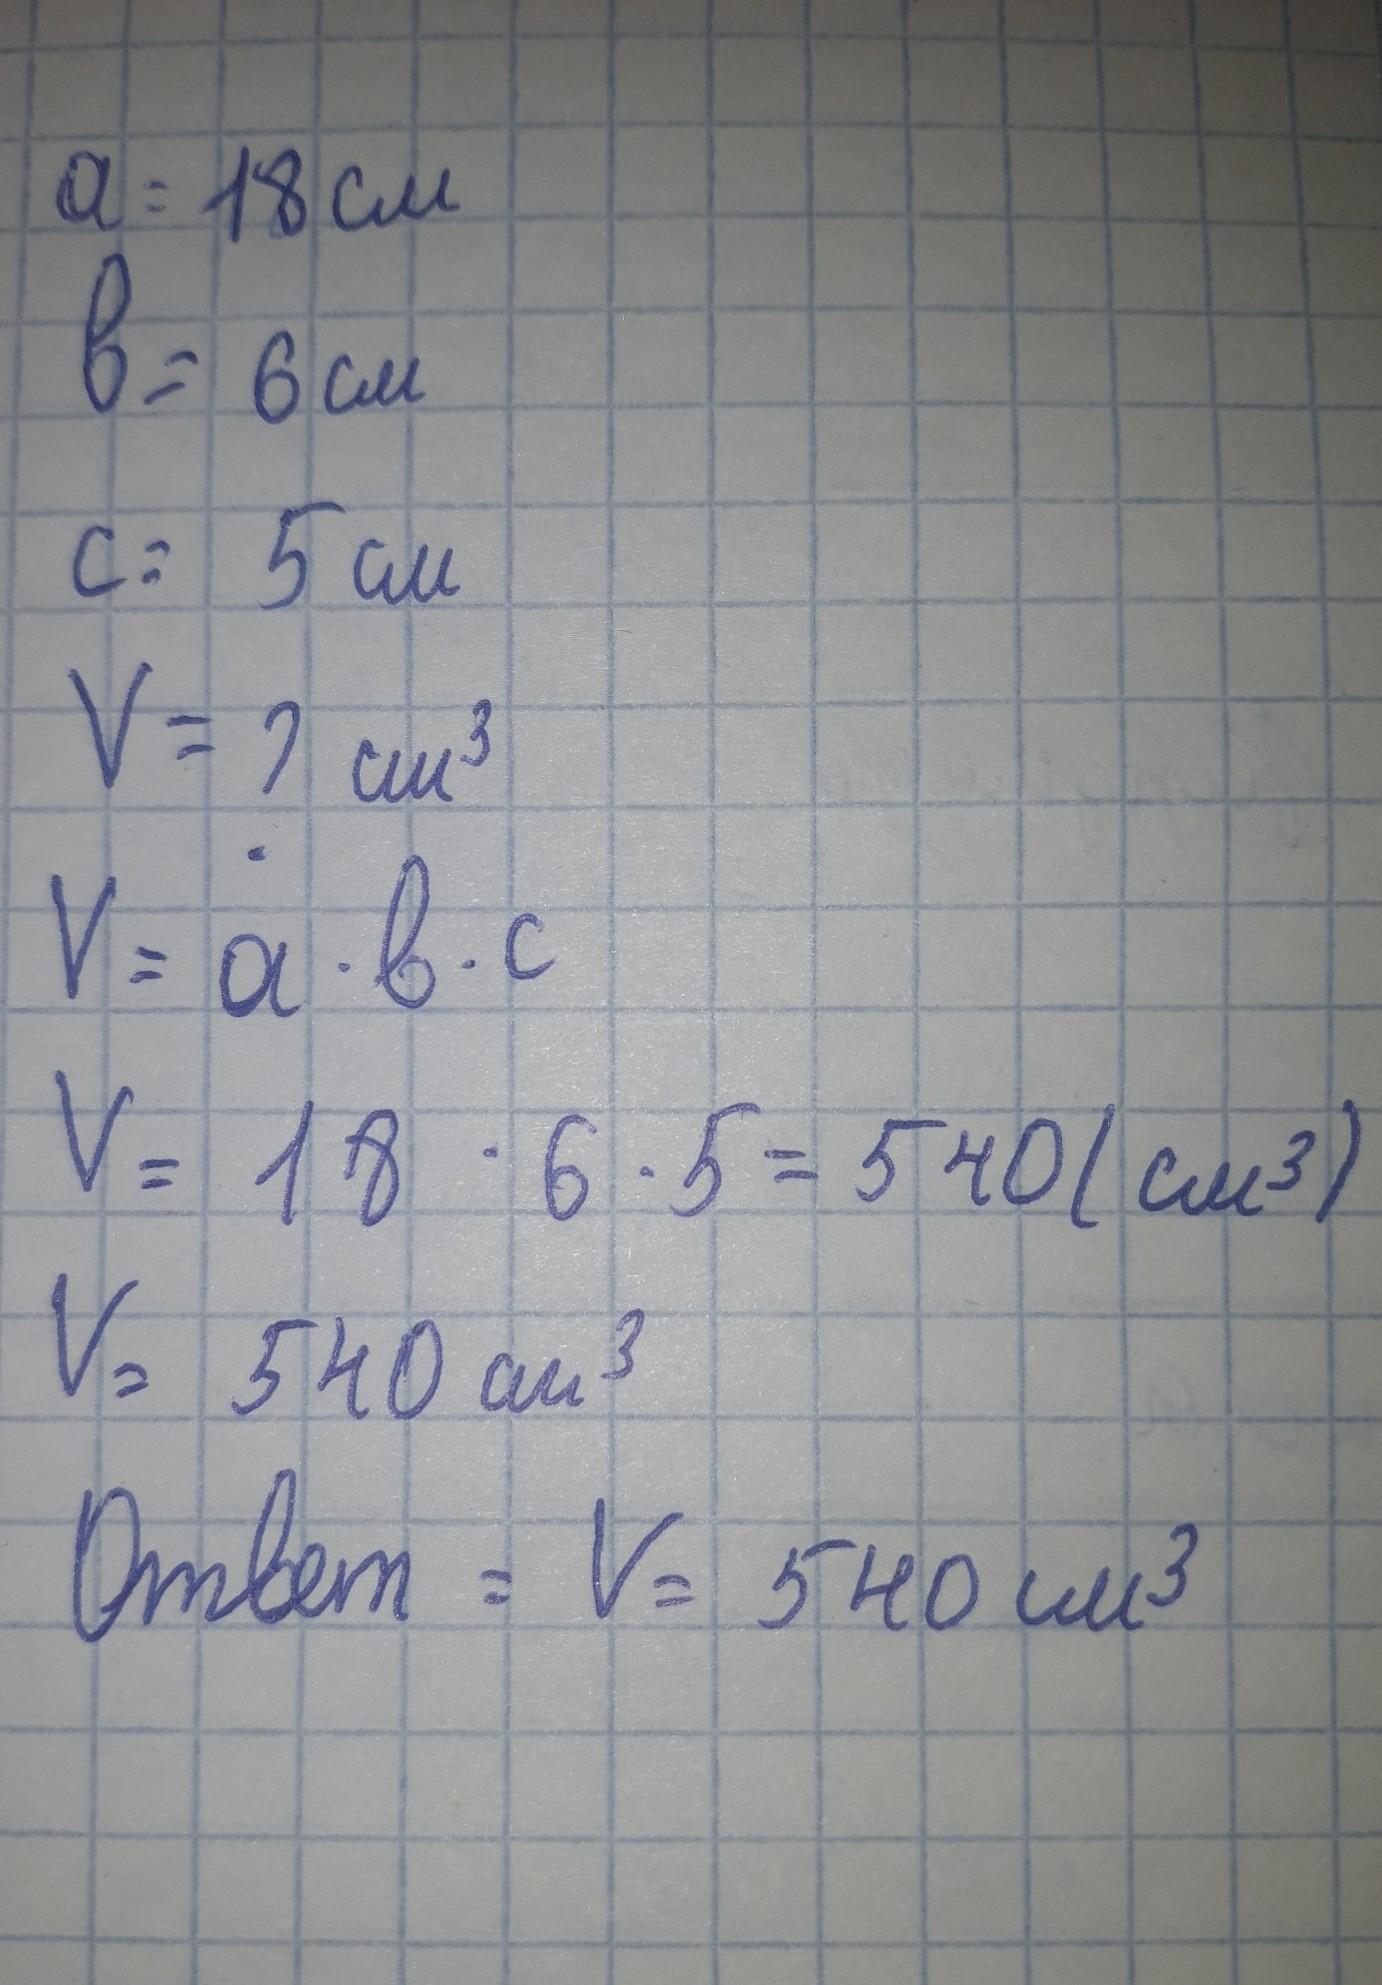 a = 18 см
в = 6 см
c = 5 см
V = ? см³
V = a · в · c
V = 18 · 6 · 5 = 540 (см³)
V = 540 см³
Ответ = V = 540 см³